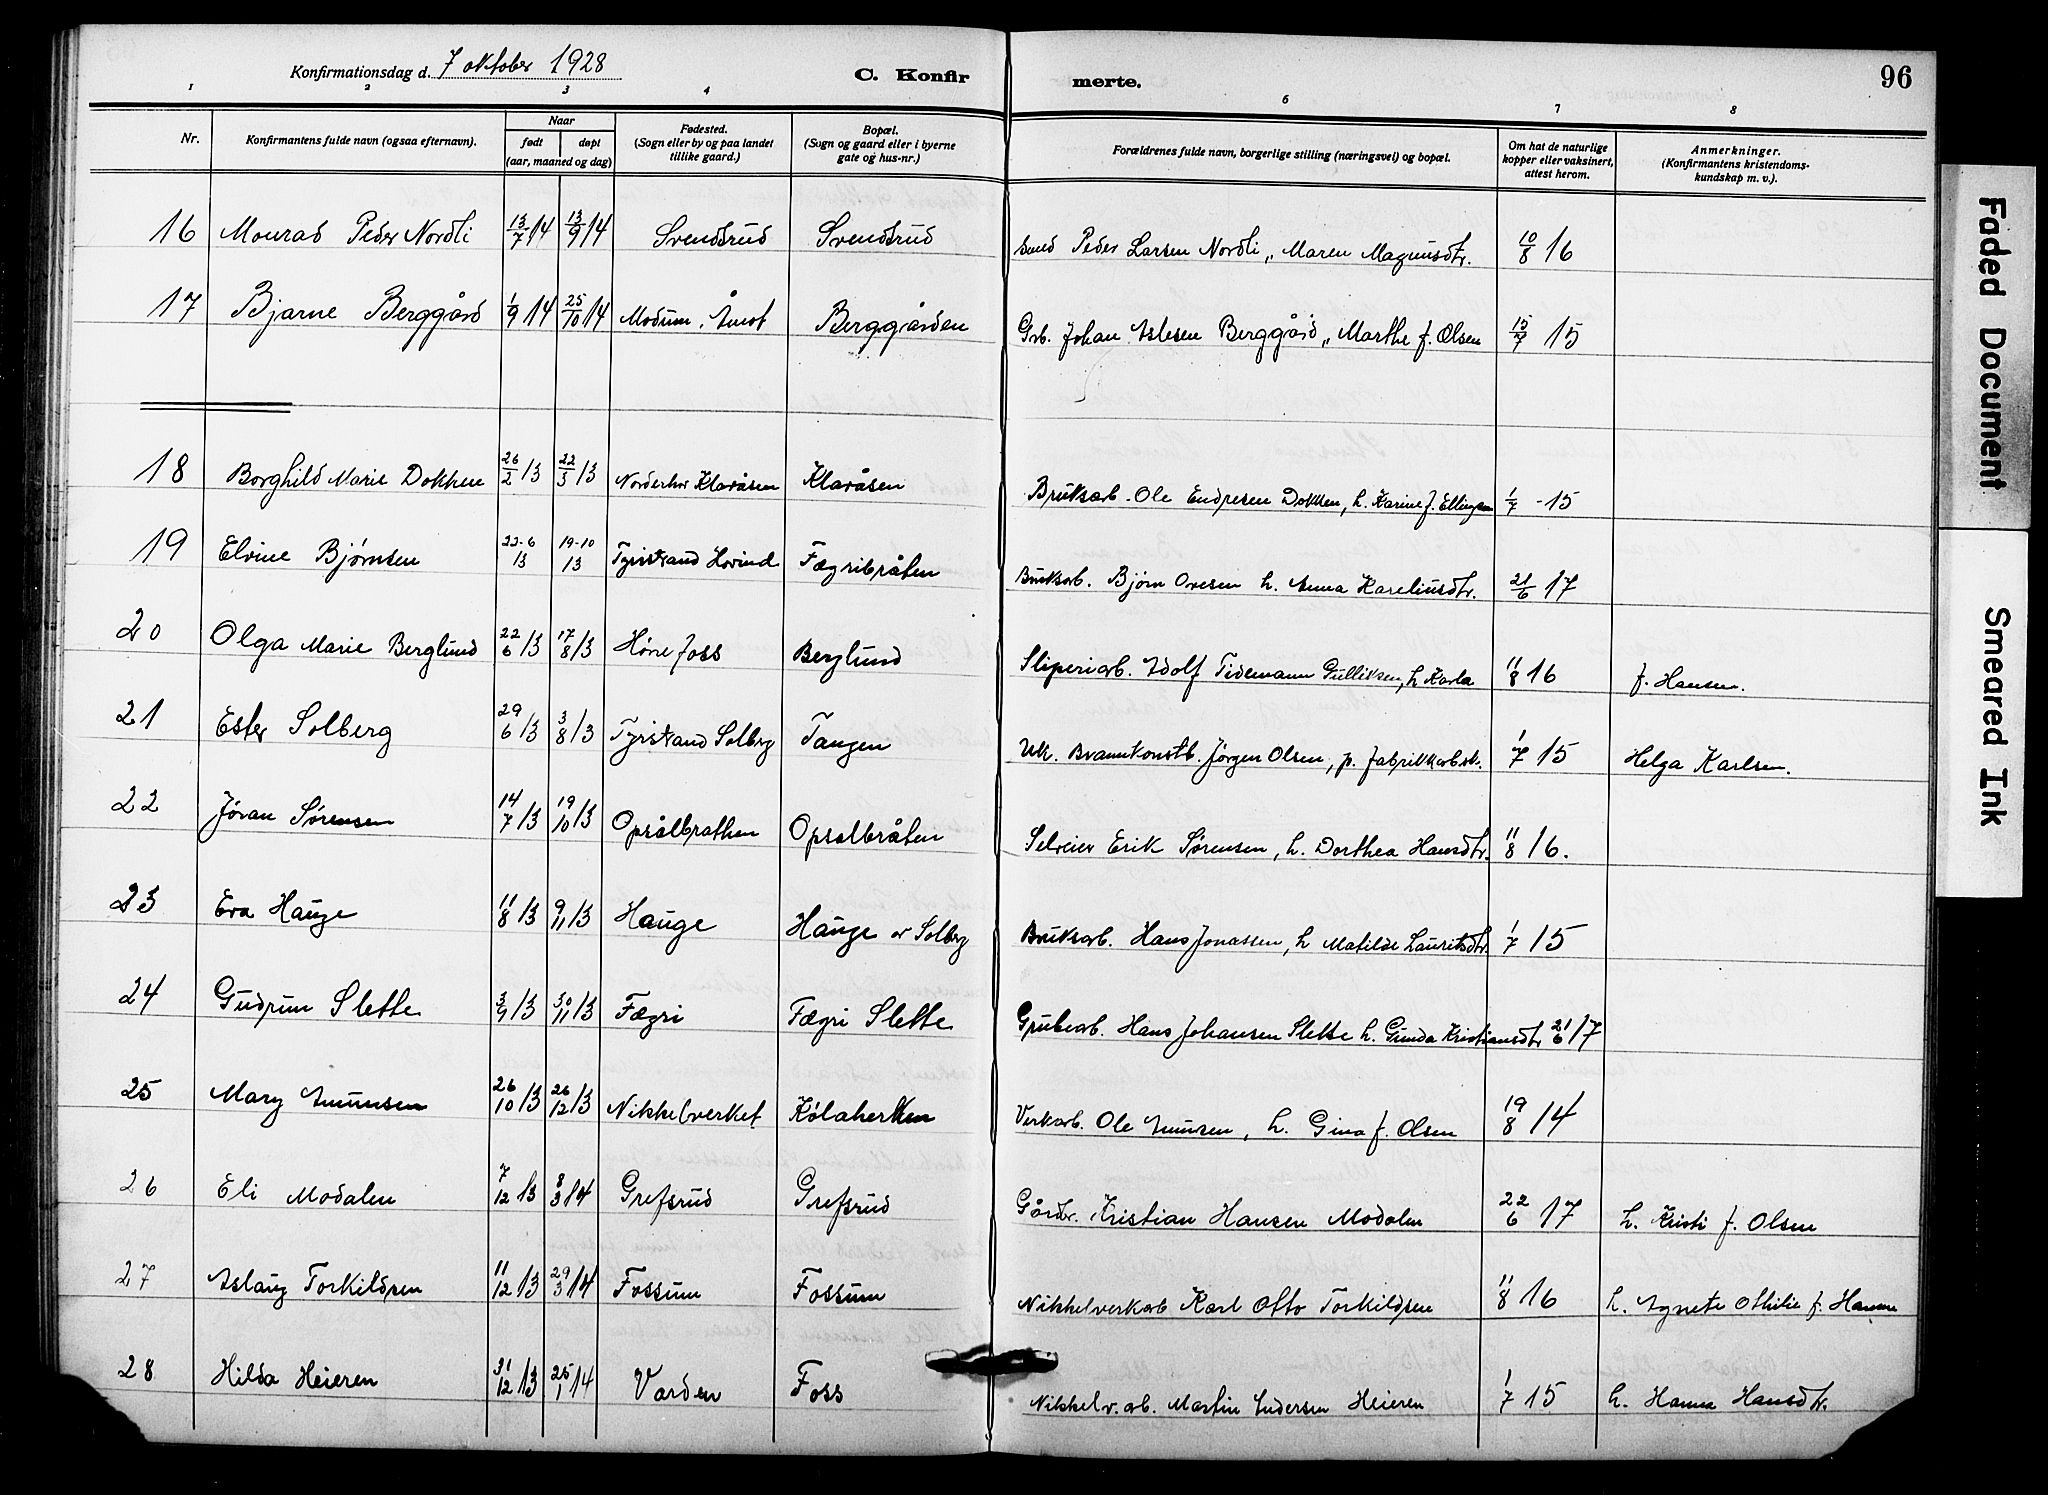 Konfirmationsdag d. 7 oktober 1928 C. Konfir merte. 96
1 2 3 4 5 6 7 8
Nr. Konfirmantens fulde navn (ogsaa efternavn). Naar født døpt (aar, maaned og dag) Fødested. (Sogn eller by og paa landet tillike gaard.) Bopæl. (Sogn og gaard eller i byerne gate og hus-nr.) Forældrenes fulde navn, borgerlige stilling (næringsvei) og bopæl. Om hat de naturlige kopper eller vaksinert, attest herom. Anmerkninger. (Konfirmantens kristendoms-kundskap m. v.).
16 Peder Nordli 13/7 14 13/9 14 Svendsrud Svendsrud Peder Larsen Nordli, Maren Magnusdtr. 10/8 16
17 Bjarne Berggård 1/9 14 25/10 14 Modum, Åmot Berggården Grb. Johan Aslesen Berggård, Marthe f. Olsen 15/7 15
18 Borghild Marie Dokken 26/2 13 22/3 13 Norderhov Klaråsen Klaråsen Bruksarb. Ole Endresen Dokken, h. Karine f. Ellingsen 1/7 - 15
19 Elvine Bjørnsen 22-6 13 19-10 13 Tyristrand Hovind Fægribråten Bruksarb. Bjørn Ovesen h. Anna Kareliusdtr. 21/6 17
20 Olga Marie Berglund 22/6 13 17/8 13 Hønefoss Berglund Sliperiarb. Adolf Tidemann Gulliksen, h Karla 11/8 16 f. Hansen.
21 Ester Solberg 29/6 13 3/8 13 Tyristrand Solberg Tangen Uek. Brannkonstb. Jørgen Olsen, p. fabrikkarbsk. 1/7 15 Helga Karlsen.
22 Jøran Sørensen 14/7 13 19/10 13 Opsålbrathen Opsalbråten Selveier Erik Sørensen, h. Dorthea Hansdtr. 11/8 16.
23 Eva Hauge 11/8 13 9/11 13 Hauge Hauge av Solberg Bruksarb. Hans Jonassen, h Matilde Lauritsdtr. 1/7 15
24 Gudrun Slette 3/9 13 30/11 13 Fægri Fægri Slette Grubearb. Hans Johansen Slette h. Gunda Kristiansdtr 21/6 17
25 Mary Amunsen 26/10 13 26/12 13 Nikkelverket Kølaherken Verkarb. Ole Amunsen, h. Gina f. Olsen 19/8 14
26 Eli Modalen 7/12 13 8/3 14 Grefsrud Grefsrud Gårdbr. Kristian Hansen Modalen 22/6 17 h. Kristi f. Olsen
27 Aslaug Torkildsen 11/12 13 29/3 14 Fossum Fossum Nikkelverkarb Karl Otto Torkildsen 11/8 16 h. Agnete Othilie f. Hansen
28 Hilda Heieren 31/12 13 25/1 14 Varden Foss Nikkelv. arb. Martin Andersen Heieren 1/7 15 h. Hanna Hansdtr.
Faded Document
Smeared Ink